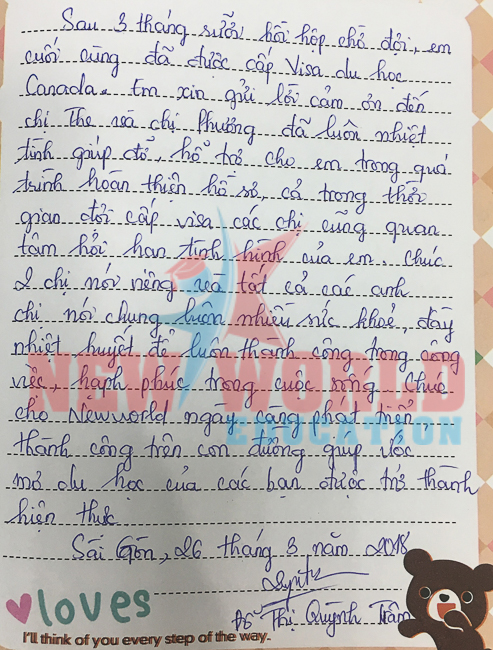 Sau 3 tháng sười hồi hộp chờ đợi, em
cuối cùng đã được cấp Visa du học
Canada. Em xin gửi lời cảm ơn đến
chị The và chị Phường đã luôn nhiệt
tình giúp đỡ, hổ trợ cho em trong quá
trình hoàn thiện hồ sơ, cả trong thời
gian đợi cấp visa các chị cũng quan
tâm hỏi han tình hình của em. Chúc
2 chị nói riêng và tất cả các anh
chị nói chung luôn nhiều sức khoẻ, đầy
nhiệt huyết để luôn thành công trong công
việc, hạnh phúc trong cuộc sống. Chúc
cho Newworld ngày càng phát triển,
thành công trên con đường giúp ước
mơ du học của các bạn được trở thành
hiện thực
NEW WORLD
EDUCATION
Sài Gòn, 26 tháng 3 năm 2018
Đỗ Thị Quỳnh Trâm
loves
I'll think of you every step of the way.